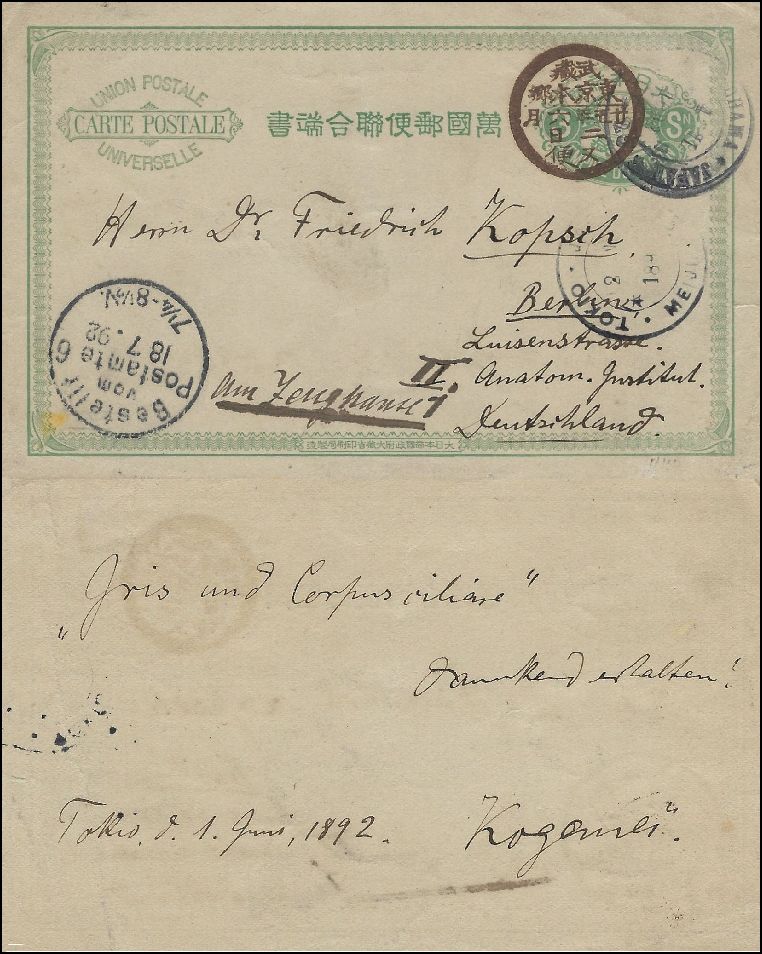 UNION POSTALE
CARTE POSTALE
UNIVERSELLE
萬國郵便聯合端書
武藏
東京本郷
二
六日
月
便
YOKOHAMA • JAPAN
TOKIO
MEIJI
Herrn Dr. Friedrich Kopsch,
Berlin,
Luisenstrasse.
II. Anatom. Institut.
am Zeughause 1
Deutschland.
Bestellt
vom
Postamte 6
18.7.92
7¼-8½N.
大日本帝國政府大藏省印刷局製造
„Iris und Corpus ciliare“
dankend erhalten!
Tokio, d. 1. Juni, 1892.
Koganei.